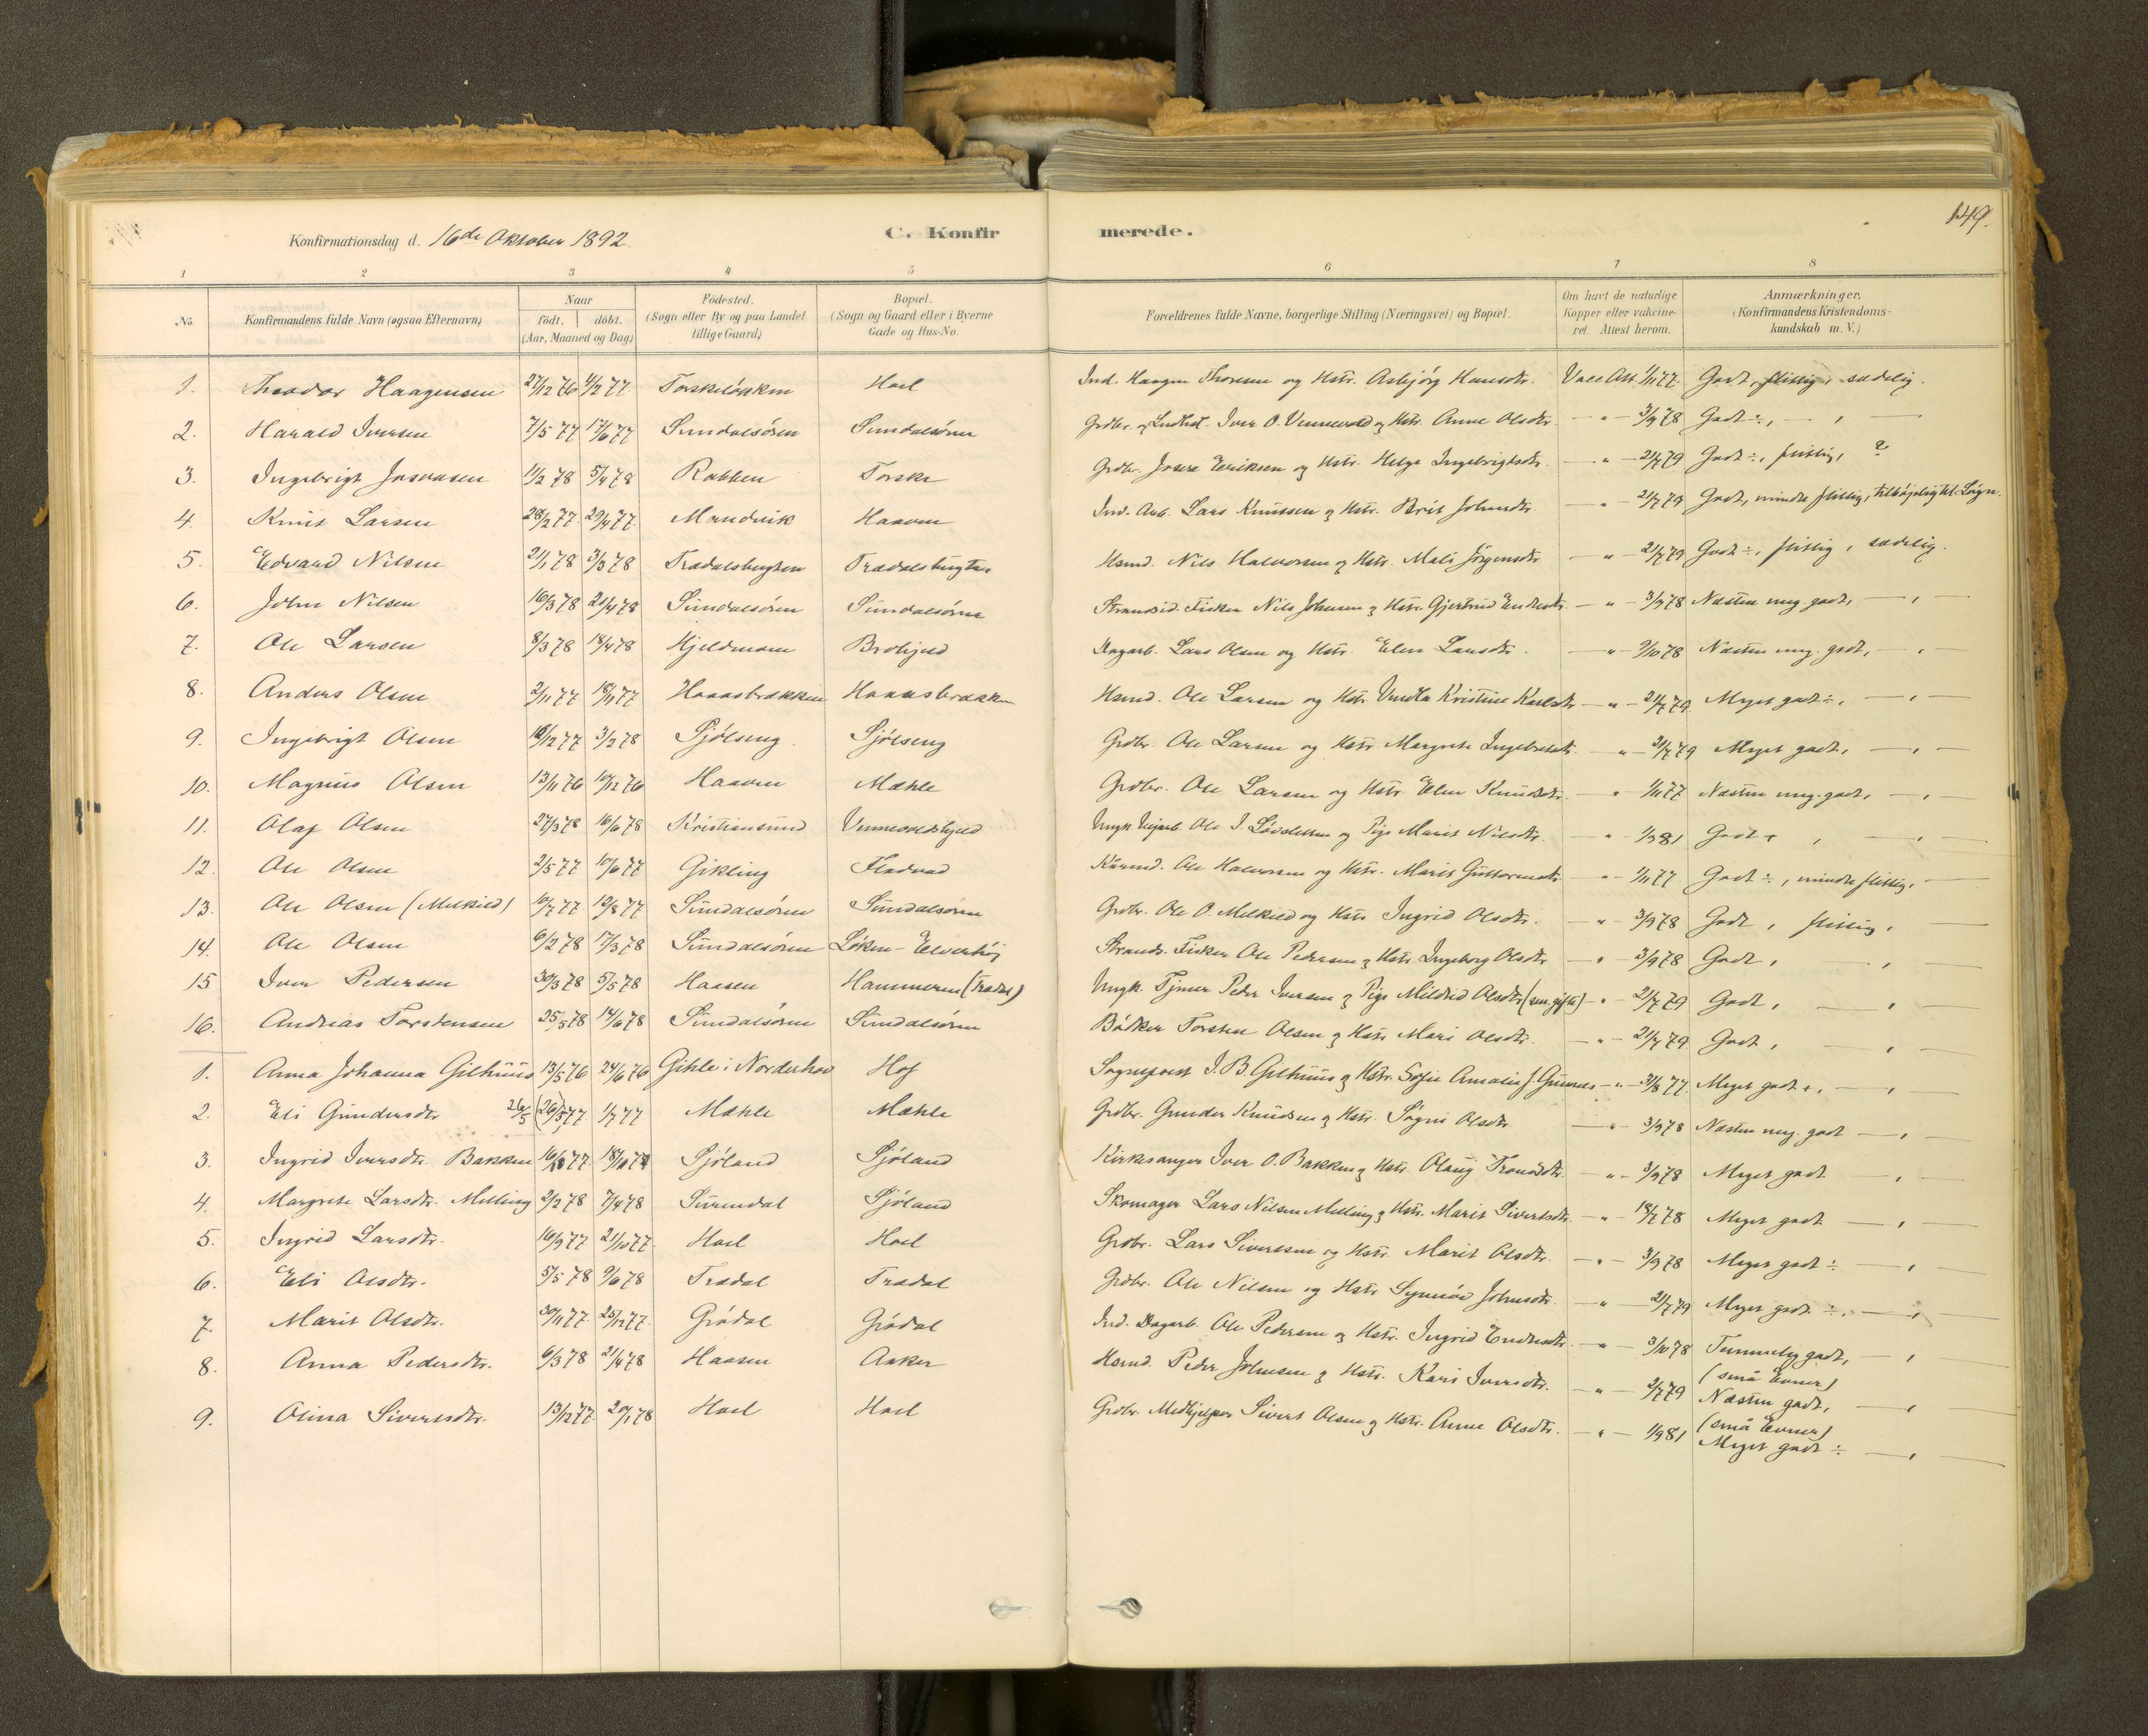 149.
Konfirmationsdag d. 16de Oktober 1892.
C. Konfirmerede.
1 2 3 4 5 6 7 8
No. Konfirmandens fulde Navn (ogsaa Efternavn) Naar födt. döbt. (Aar, Maaned og Dag) Födested. (Sogn eller By og paa Landet tillige Gaard) Bopæl. (Sogn og Gaard eller i Byerne Gade og Hus-No. Forældrenes fulde Navne, borgerlige Stilling (Næringsvei) og Bopæl. Om havt de naturlige Kopper eller vakcineret. Attest herom. Anmærkninger. (Konfirmandens Kristendomskundskab m. V.)
1. Theodor Haagensen 27/12 76 4/2 77 Torskeløkken Hoel Ind. Haagen Thoresen og Hstr. Asbjørg Hansdtr. Vacc Att 1/11 77 Godt, flittig, sædelig.
2. Harald Iversen 7/5 77 17/6 77 Sundalsøren Sundalsøren Grdbr. og Iver O. Vennevold og Hstr. Anne Olsdtr. — " — 3/9 78 Godt ÷, — , —
3. Ingebrigt Jos 11/2 78 5/4 78 Rabben Torske Grdbr. Eriksen og Hstr. Helga Ingebrigtsdtr. — " — 21/7 79 Godt ÷, flittig, ?
4. Knut Larsen 28/2 77 29/4 77 Mandvik Haaven Ind. Arb. Lars Knutsen og Hstr. Brit Johnsdtr — " — 21/7 79 Godt, mindre flittig, tilbøjelig til Løgn.
5. Edvard Nilsen 21/1 78 3/3 78 Trædalsbugten Trædalsbugten Hsmd. Nils Halvorsen og Hstr. Mali Jörgensdtr — " — 21/7 79 Godt ÷, flittig, sædelig.
6. John Nilsen 16/3 78 21/4 78 Sundalsøren Sundalsøren Strandsid. Fisker Nils Johnsen og Hstr. Gjertrud Endresdtr. — " — 3/9 78 Næsten meg. godt, — , —
7. Ole Larsen 8/3 78 18/4 78 Hjeldmoen Brohjeld Dagarb. Lars Olsen og Hstr. Elen Larsdtr. — " 9/10 78 Næsten meg. godt, — , —
8. Anders Olsen 2/11 77 18/11 77 Haaasbrækken Haaasbrækken Hsmd. Ole Larsen og Hstr. Kristine Karlsdtr — " — 21/7 79 Myet godt ÷, — , —
9. Ingebrigt Olsen 12 77 3/2 78 Sjølseng Sjølseng Grdbr. Ole Larsen og Hstr. Margrete Ingebr — " — 21/7 79 Meget godt, — , —
10. Magnus Olsen 13/11 76 10/12 76 Haaven Mæhle Grdbr. Ole Larsen og Hstr. Elen Knudsdtr. — " 1/11 77 Næsten meg. godt, — , —
11. Olaf Olsen 27/3 78 16/6 78 Kristiansund Vennevoldshjeld Ungk. Vejarb. Ole J. og Pige Marit Nilsdtr. — " 1/9 81 Godt + , — , —
12. Ole Olsen 2/5 77 10/6 77 Gikling Fladvad Ole Halvorsen og Hstr. Marit Guttormsdtr — " 1/11 77 Godt ÷, mindre flittig, —
13. Ole Olsen (Melkild) 16/7 77 12/8 77 Sundalsøren Sundalsøren Grdbr. Ole O. Melkild og Hstr. Ingrid Olsdtr. " — 3/9 78 Godt, flittig, —
14. Ole Olsen 6/2 78 17/3 78 Sundalsøren Løken - Elverhøj Strands. Fisker Ole Pedersen og Hstr. Ingeborg Olsdtr — " — 3/9 78 Godt, — , —
15 Iver Pedersen 30/3 78 5/5 78 Haasen Hammeren (Trædal) Ungk. Tjener Peder Iversen og Pige Mildrid Olsdtr (sen. gifte) — " — 21/7 79 Godt, — , —
16. Andreas Torstensen 25/5 78 14/6 78 Sundalsøren Sundalsøren Bødker Torsten Olsen og Hstr. Mari Olsdtr. — " — 21/7 79 Godt, — , —
1. Anna Johanna Gilhuus 13/5 76 24/6 76 Gihle i Norderhov Hof Sogneprest J. B. Gilhuus og Hstr. Sofie Amalie J. — " — 31/8 77. Meget godt +, — ,
2. Eli Gundersdtr 26/5 (26/5) 77 1/7 77 Mæhle Mæhle Grdbr. Gunder Knudsen og Hstr. Sögni Olsdtr. — " — 3/9 78 Næsten meg. godt — , —
3. Ingrid Iversdtr. Bakken 16/ 77 18/ Sjöland Sjöland Kirkesanger Iver O. Bakken og Hstr. Olaug Trondsdtr — " — 3/9 78 Meget godt — , —
4. Margrete Larsdtr. Melling 2/2 78 7/4 78 Surendal Sjöland Skomager Lars Nilsen Melling og Hstr. Marit Sivertsdtr. — " — 18/7 78 Meget godt — , —
5. Ingrid Larsdtr. 16/9 77 21/10 77 Hoel Hoel Grdbr. Lars Sivertsen og Hstr. Marit Olsdtr. — " — 3/9 78 Meget godt ÷ — , —
6. Eli Olsdtr. 5/5 78 9/6 78 Trædal Trædal Grdbr. Ole Nilsen og Hstr. Synnöv Johnsdtr. — " — 21/7 79 Meget godt ÷, — , —
7. Marit Olsdtr. 30/11 77. 25/12 77. Grödal Grödal Ind. Dagarb. Ole Pedersen og Hstr. Ingrid Endresdtr. — " — 3/10 78 Temmelig godt, — , (små Evner)
8. Anna Pedersdtr. 6/3 78 21/4 78 Haasen Anker Hsmd. Peder Johnsen og Hstr. Kari Iversdtr. — " — 2/7 79 Næsten godt, — , (små Evner)
9. Olina Sivertsdtr. 13/12 77 20/1 78 Hoel Hoel Grdbr. Medhjelper Sivert Olsen og Hstr. Anne Olsdtr. — " — 1/9 81 Meget godt ÷ — ,